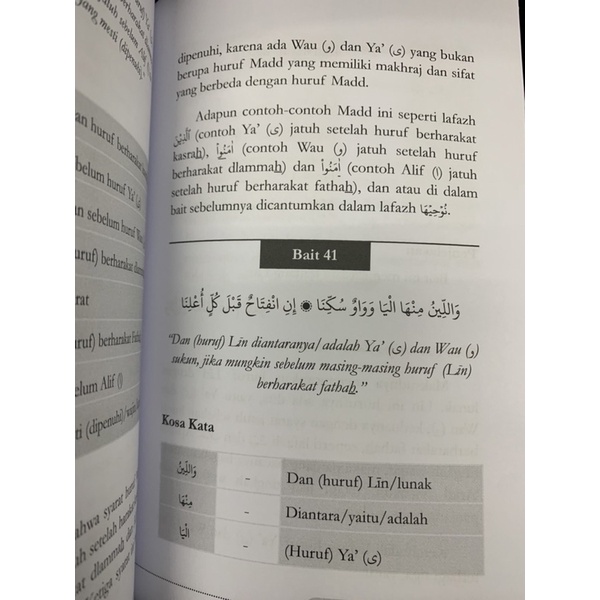 dipenuhi, karena ada Wau (و) dan Ya' (ى) yang bukan
berupa huruf Madd yang memiliki makhraj dan sifat
yang berbeda dengan huruf Madd.
Adapun contoh-contoh Madd ini seperti lafazh
ٱلَّذِيْنَ (contoh Ya' (ى) jatuh setelah huruf berharakat
kasrah), ءَامَنُوْا (contoh Wau (و) jatuh setelah huruf
berharakat dlammah) dan ءَامَنُوْا (contoh Alif (ا) jatuh
setelah huruf berharakat fathah), dan atau di dalam
bait sebelumnya dicantumkan dalam lafazh نُوْحِيْهَا.
Bait 41
وَاللِّينُ مِنْهَا الْيَا وَوَاوٌ سُكِّنَا ۞ إِنِ انْفِتَاحٌ قَبْلَ كُلٍّ أُعْلِنَا
"Dan (huruf) Līn diantaranya/adalah Ya' (ى) dan Wau (و)
sukun, jika mungkin sebelum masing-masing huruf (Līn)
berharakat fathah."
Kosa Kata
وَاللِّينُ - Dan (huruf) Līn/lunak
مِنْهَا - Diantara/yaitu/adalah
الْيَا - (Huruf) Ya' (ى)
an huruf berharakat
belum huruf Ya' (ى)
an sebelum huruf Wau
uruf) berharakat dlammah
rat
uruf) berharakat Fathah
elum Alif (ا)
ti (dipenuhi)/wajib
ahwa syarat huruf
ah setelah huruf
at dlammah dan
etiga syarat